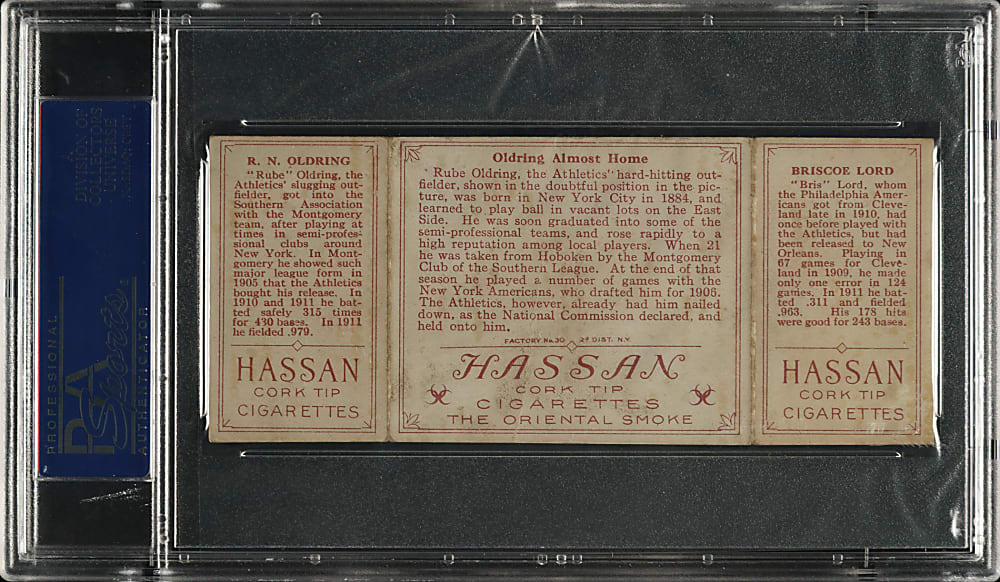 A
DIVISION OF
COLLECTORS
UNIVERSE
PROFESSIONAL
PSA
Sports
AUTHENTICATOR
R. N. OLDRING
"Rube" Oldring, the
Athletics' slugging out-
fielder, got into the
Southern Association
with the Montgomery
team, after playing at
times in semi-profes-
sional clubs around
New York. In Mont-
gomery he showed such
major league form in
1905 that the Athletics
bought his release. In
1910 and 1911 he bat-
ted safely 315 times
for 430 bases. In 1911
he fielded .979.
HASSAN
CORK TIP
CIGARETTES
Oldring Almost Home
Rube Oldring, the Athletics' hard-hitting out-
fielder, shown in the doubtful position in the pic-
ture, was born in New York City in 1884, and
learned to play ball in vacant lots on the East
Side. He was soon graduated into some of the
semi-professional teams, and rose rapidly to a
high reputation among local players. When 21
he was taken from Hoboken by the Montgomery
Club of the Southern League. At the end of that
season he played a number of games with the
New York Americans, who drafted him for 1906.
The Athletics, however, already had him nailed
down, as the National Commission declared, and
held onto him.
FACTORY No. 30 2d DIST. N.Y.
HASSAN
CORK TIP
CIGARETTES
THE ORIENTAL SMOKE
BRISCOE LORD
"Bris" Lord, whom
the Philadelphia Amer-
icans got from Cleve-
land late in 1910, had
once before played with
the Athletics, but had
been released to New
Orleans. Playing in
67 games for Cleve-
land in 1909, he made
only one error in 124
games. In 1911 he bat-
ted .311 and fielded
.963. His 178 hits
were good for 243 bases.
HASSAN
CORK TIP
CIGARETTES